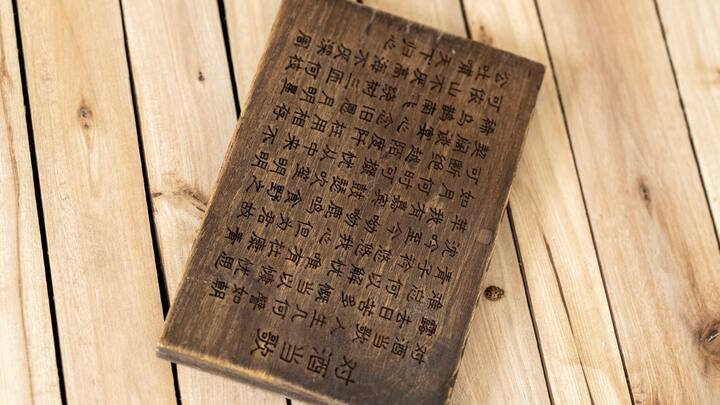 对酒当歌
对酒当歌人生几何譬如朝
露去日苦多慨当以慷忧思
难忘何以解忧唯有杜康青
青子衿悠悠我心但为君故
沈吟至今呦呦鹿鸣食野之
苹我有嘉宾鼓瑟吹笙明明
如月何时可掇忧从中来不
可断绝越陌度阡枉用相存
契阔谈心念旧恩月明星
稀乌鹊南飞绕树三匝何枝
可依山不厌高海不厌深周
公吐哺天下归心